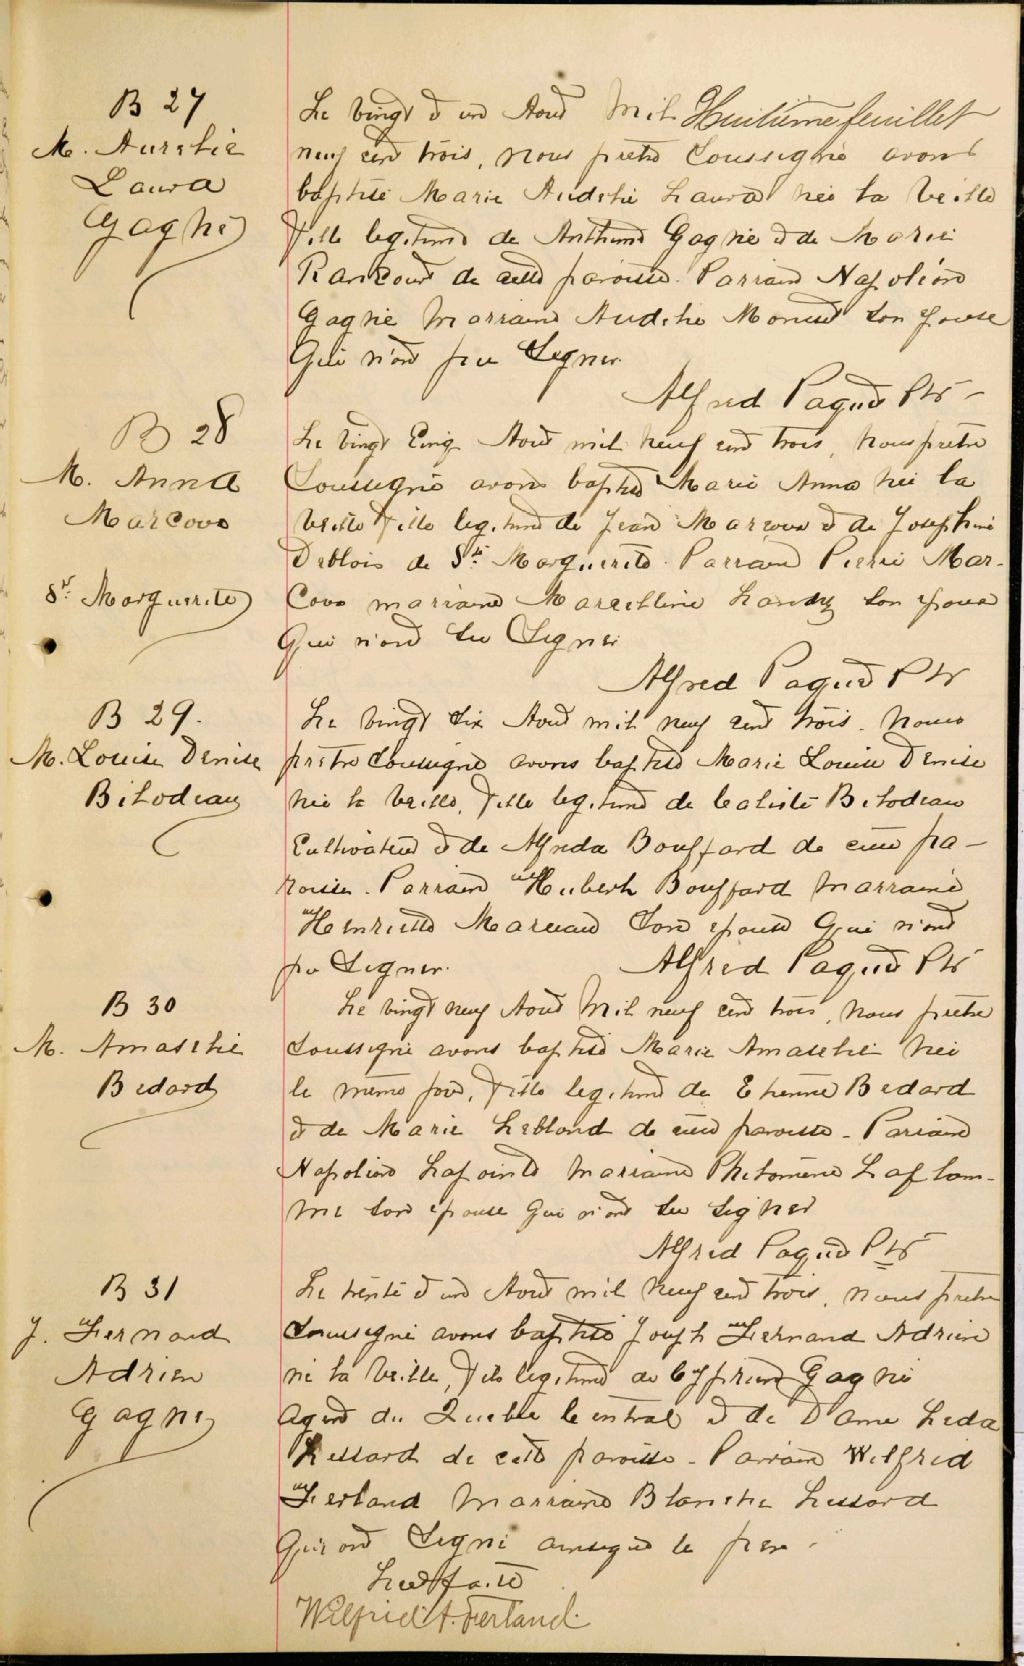 B 27
M. Aurelie
Laura
Gagné
Le vingt et un Aout Mil Huitième feuillet
neuf cent trois, nous pretre Soussigné avons
baptisé Marie Audelie Laura née la veille
fille legitime de Anthime Gagné et de Marie
Rancourt de cette paroisse. Parrain Napoléon
Gagné Marraine Audelie Morin son epouse
Qui n'ont pu Signer
Alfred Paquet Ptr
B 28
M. Anna
Marcoux
Ste Marguerite
Le vingt Cinq Aout mil neuf cent trois, nous pretre
Soussigné avons baptisé Marie Anna née la
veille fille legitime de Jean Marcoux et de Josephine
Deblois de Ste Marguerite. Parrain Pierre Mar-
coux marraine Marcelline son epouse
Qui n'ont su Signer
Alfred Paquet Ptr
B 29.
M. Louise Denise
Bilodeau
Le vingt six Aout mil neuf cent trois. nous
pretre Soussigné avons baptisé Marie Louise Denise
née la veille, fille legitime de Calixte Bilodeau
Cultivateur et de Alfreda Bouffard de cette pa-
roisse. Parrain Hubert Bouffard Marraine
Henriette Marceau Son epouse Qui n'ont
pu Signer.
Alfred Paquet Ptr
B 30
M. Amaselie
Bedard
Le vingt neuf Aout Mil neuf cent trois, nous pretre
Soussigné avons baptisé Marie Amaselie née
le même jour, fille legitime de Etienne Bedard
et de Marie Leblond de cette paroisse - Parrain
Napoléon Lapointe Marraine Philomène Laflam-
me son epouse Qui n'ont su signer
Alfred Paquet Ptr
B 31
J. Fernand
Adrien
Gagné
Le trente et un Aout mil neuf cent trois, nous pretre
Soussigné avons baptisé Joseph Fernand Adrien
né la veille, fils legitime de Cyprien Gagné
Agent du Quebec Central et de Dame Leda
Lessard de cette paroisse - Parrain Wilfrid
Ferland Marraine Blanche Lessard
Qui ont Signé ainsique le père.
Lecture faite
Wilfrid A. Ferland.